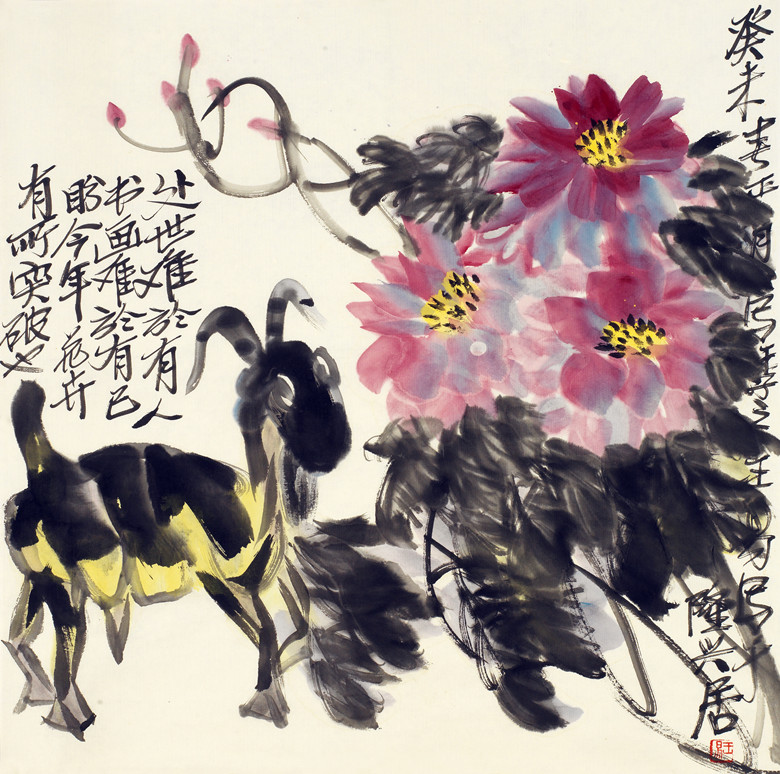 癸未春正月
写于
隆兴居
处世难於有人
书画难於有己
盼今年花卉
有所突破也